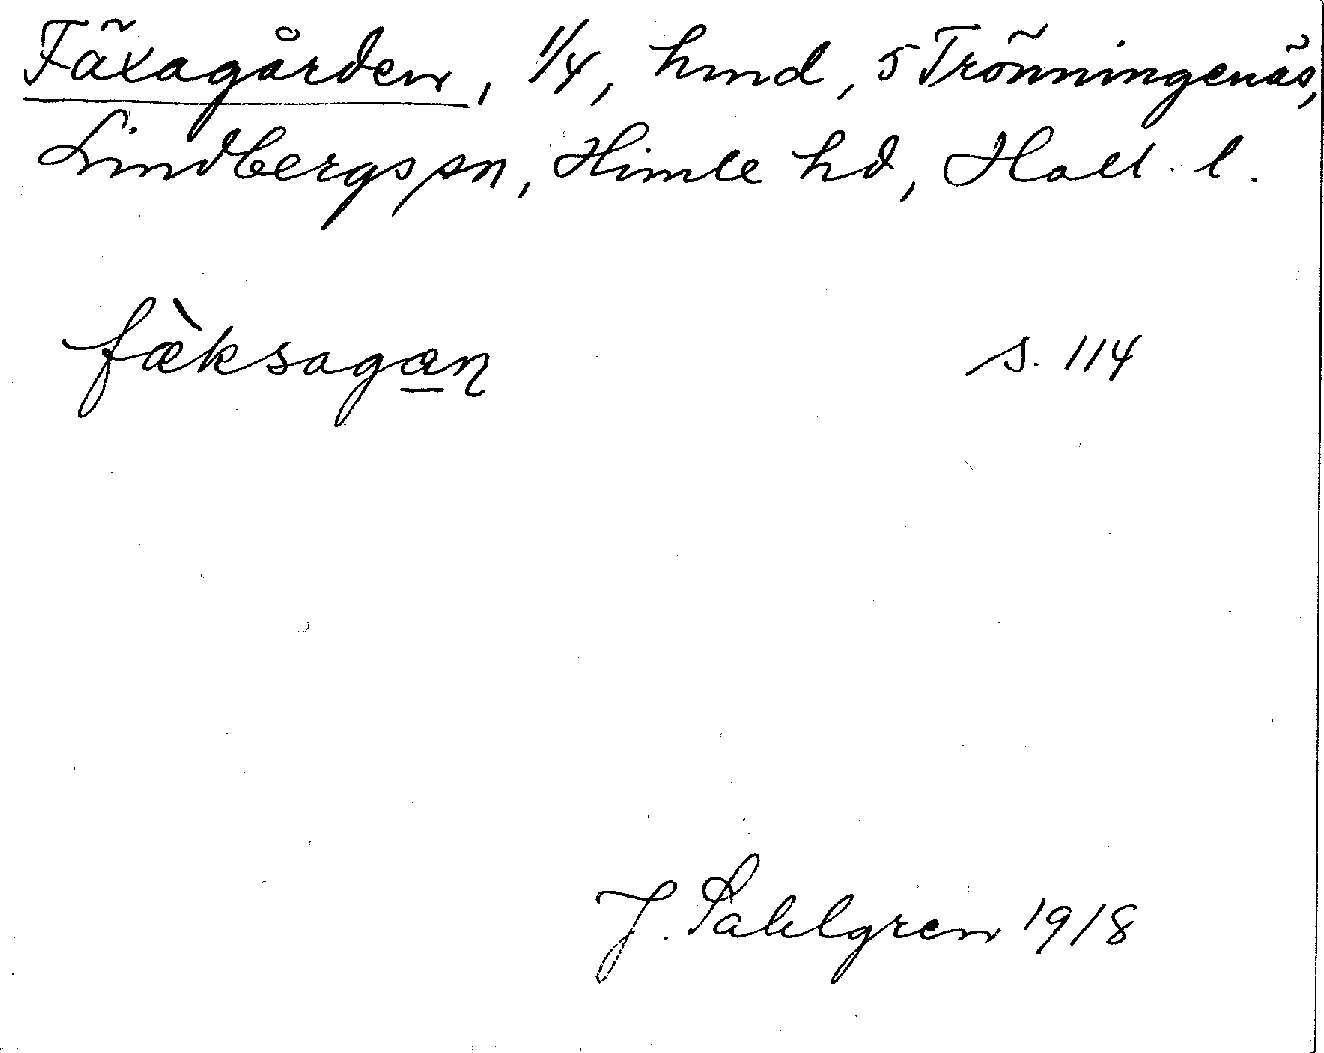 Fäxagården, 1/4, hmd, 5 Trönningenäs,
Lindbergs sn, Himle hd, Hall. l.
fæ̀ksagæn s. 114
J. Sahlgren 1918